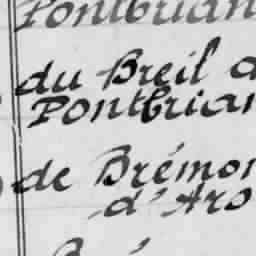 Pontbrian
du Breil d
Pontbrian
de Brémon
d'Ars